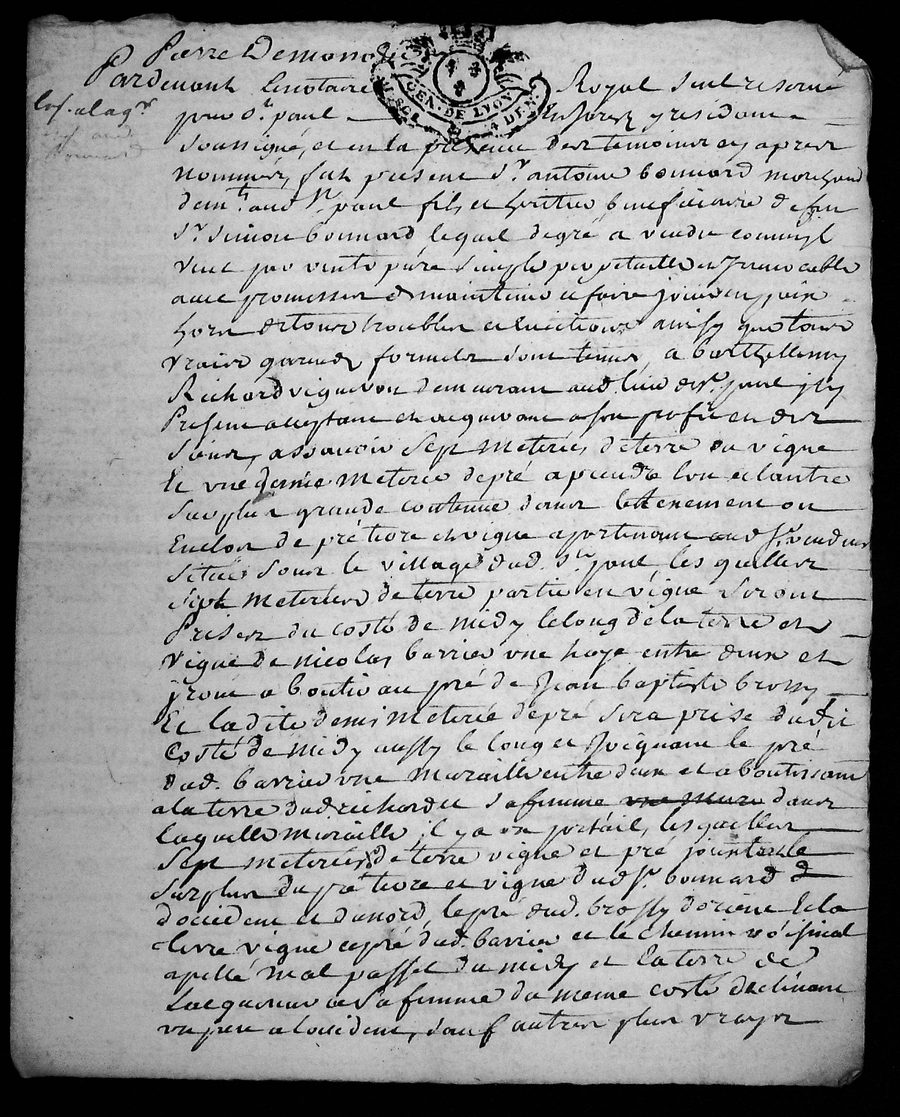 Pierre Demono
GEN. DE LYON
4 DEN.
Pardevant le notaire Royal seul reservé
pour St. paul en forez y residant
Soussigné, et en la presence des temoins cy apres
Nommés, fut present Sr. antoine bonnard marchand
demt. aud St. paul fils et heritier beneficiaire de feu
Sr. Simon bonnard lequel de gré a vendu comme il
vend par vente pure simple perpetuelle et Irrevocable
avec promesses de maintenir et faire jouir en paix
hors de tous troubles et evictions ainsy que tous
vrais garends formels sont tenus, a barthellemy
Richard vigneron demeurant aud. lieu de St. paul icy
Present acceptant et acquerant a son profit et des
Siens, assavoir Sept meterées de terre ou vigne
Et une demie meterée de pré a prendre l'un et l'autre
Sur plus grande contenue dans le tenement ou
Enclos de pré terre et vigne apartenant aud Sr. vendeur
Situés sous le village dud. St. paul lesquelles
sept meterées de terre partie en vigne seront
Prises du costé de midy le long de la terre et
vigne de nicolas barrier une haye entre deux et
iront aboutir au pré de Jean baptiste brossy
Et ladite demi meterée de pré sera prise dudit
Costé de midy aussy le long et joignant le pré
dud. barrier une muraille entre deux et aboutissant
a la terre dud richard et sa femme une mura dans
laquelle muraille il y a un portail, lesquelles
Sept meterées de terre vigne et pré joustent le
Surplus du pré terre et vigne dud Sr. bonnard
d'occident et du nord, le pré dud. brossy d'orient Et la
terre vigne et pré dud. barrier et le chemin
apellé mal passet du midy et la terre de
Lacquereur et sa femme du meme costé declinant
un peu a l'occident, sauf autres plus vrayes